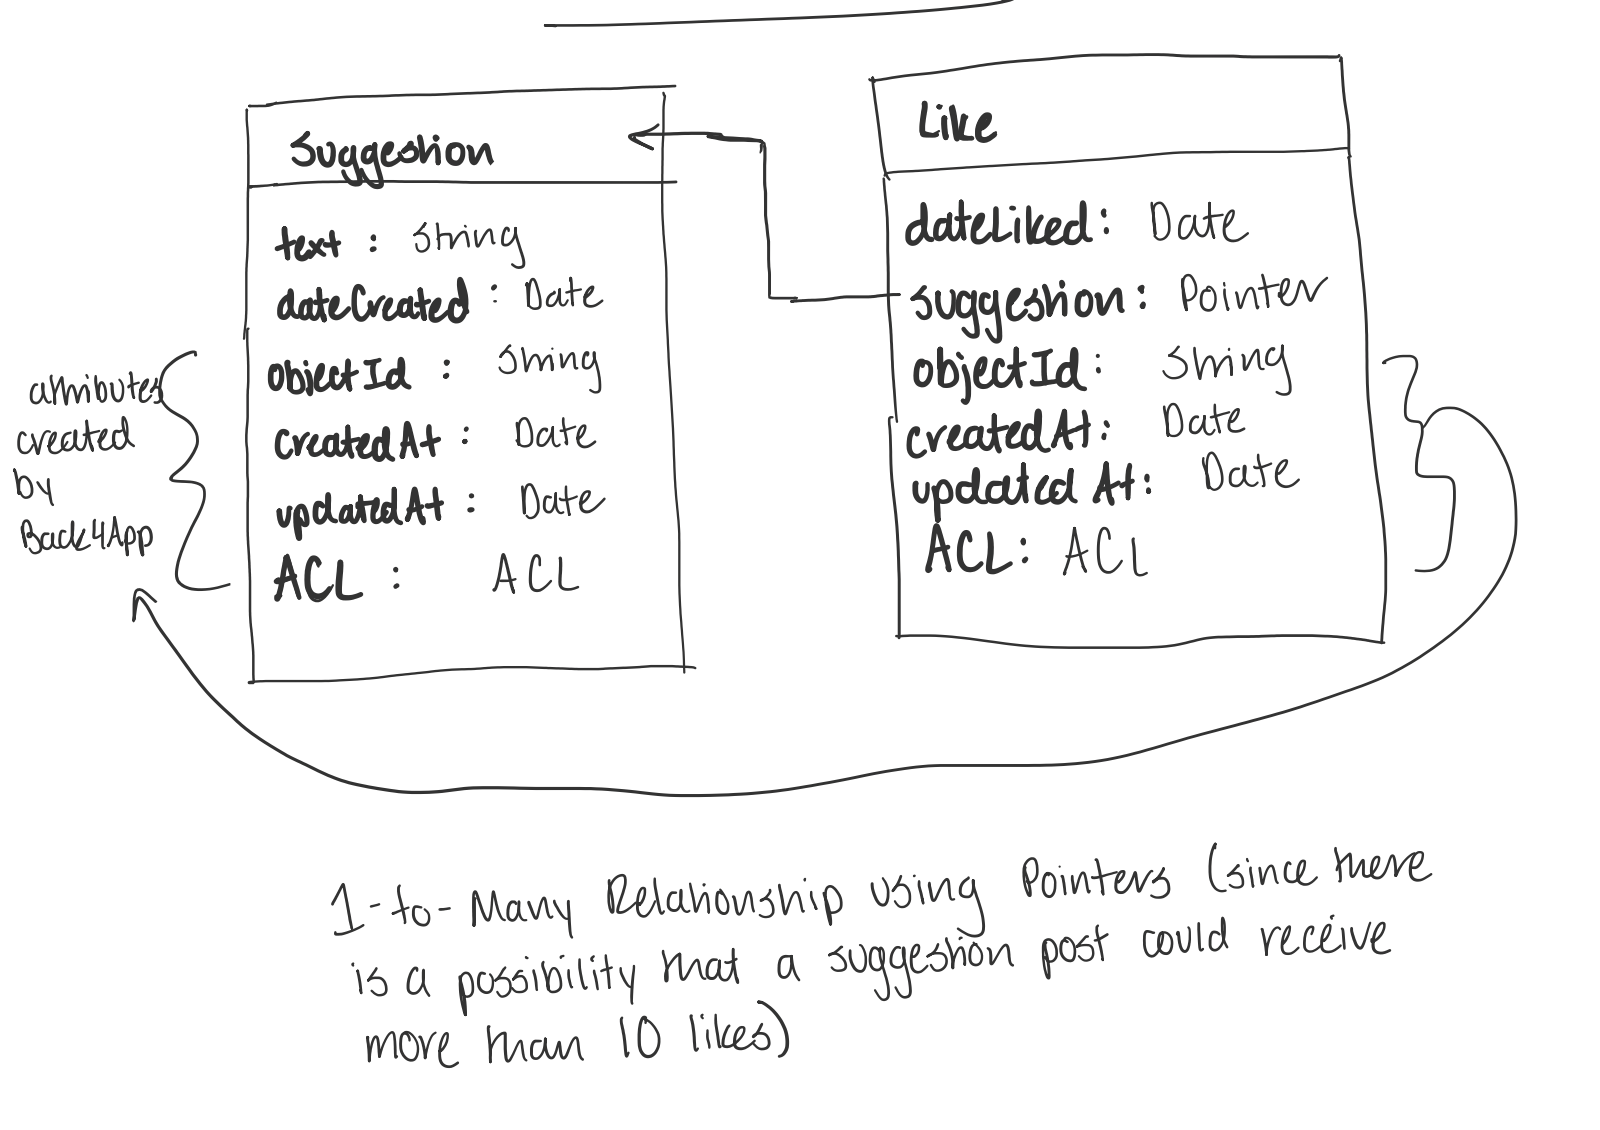 Suggestion
text : String
dateCreated : Date
objectId : String
createdAt : Date
updatedAt : Date
ACL : ACL
attributes
created
by
Back4App
Like
dateLiked : Date
suggestion : Pointer
objectId : String
createdAt : Date
updatedAt : Date
ACL : ACL
1-to-Many Relationship using Pointers (since there
is a possibility that a suggestion post could receive
more than 10 likes)